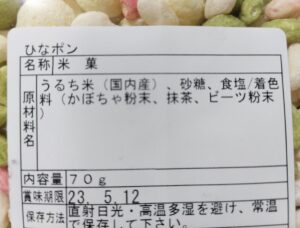 ひなポン
名称 米 菓
原材料名 うるち米（国内産）、砂糖、食塩/着色
料（かぼちゃ粉末、抹茶、ビーツ粉末
）
内容量 70g
賞味期限 23. 5.12
保存方法 直射日光・高温多湿を避け、常温
で保存して下さい。